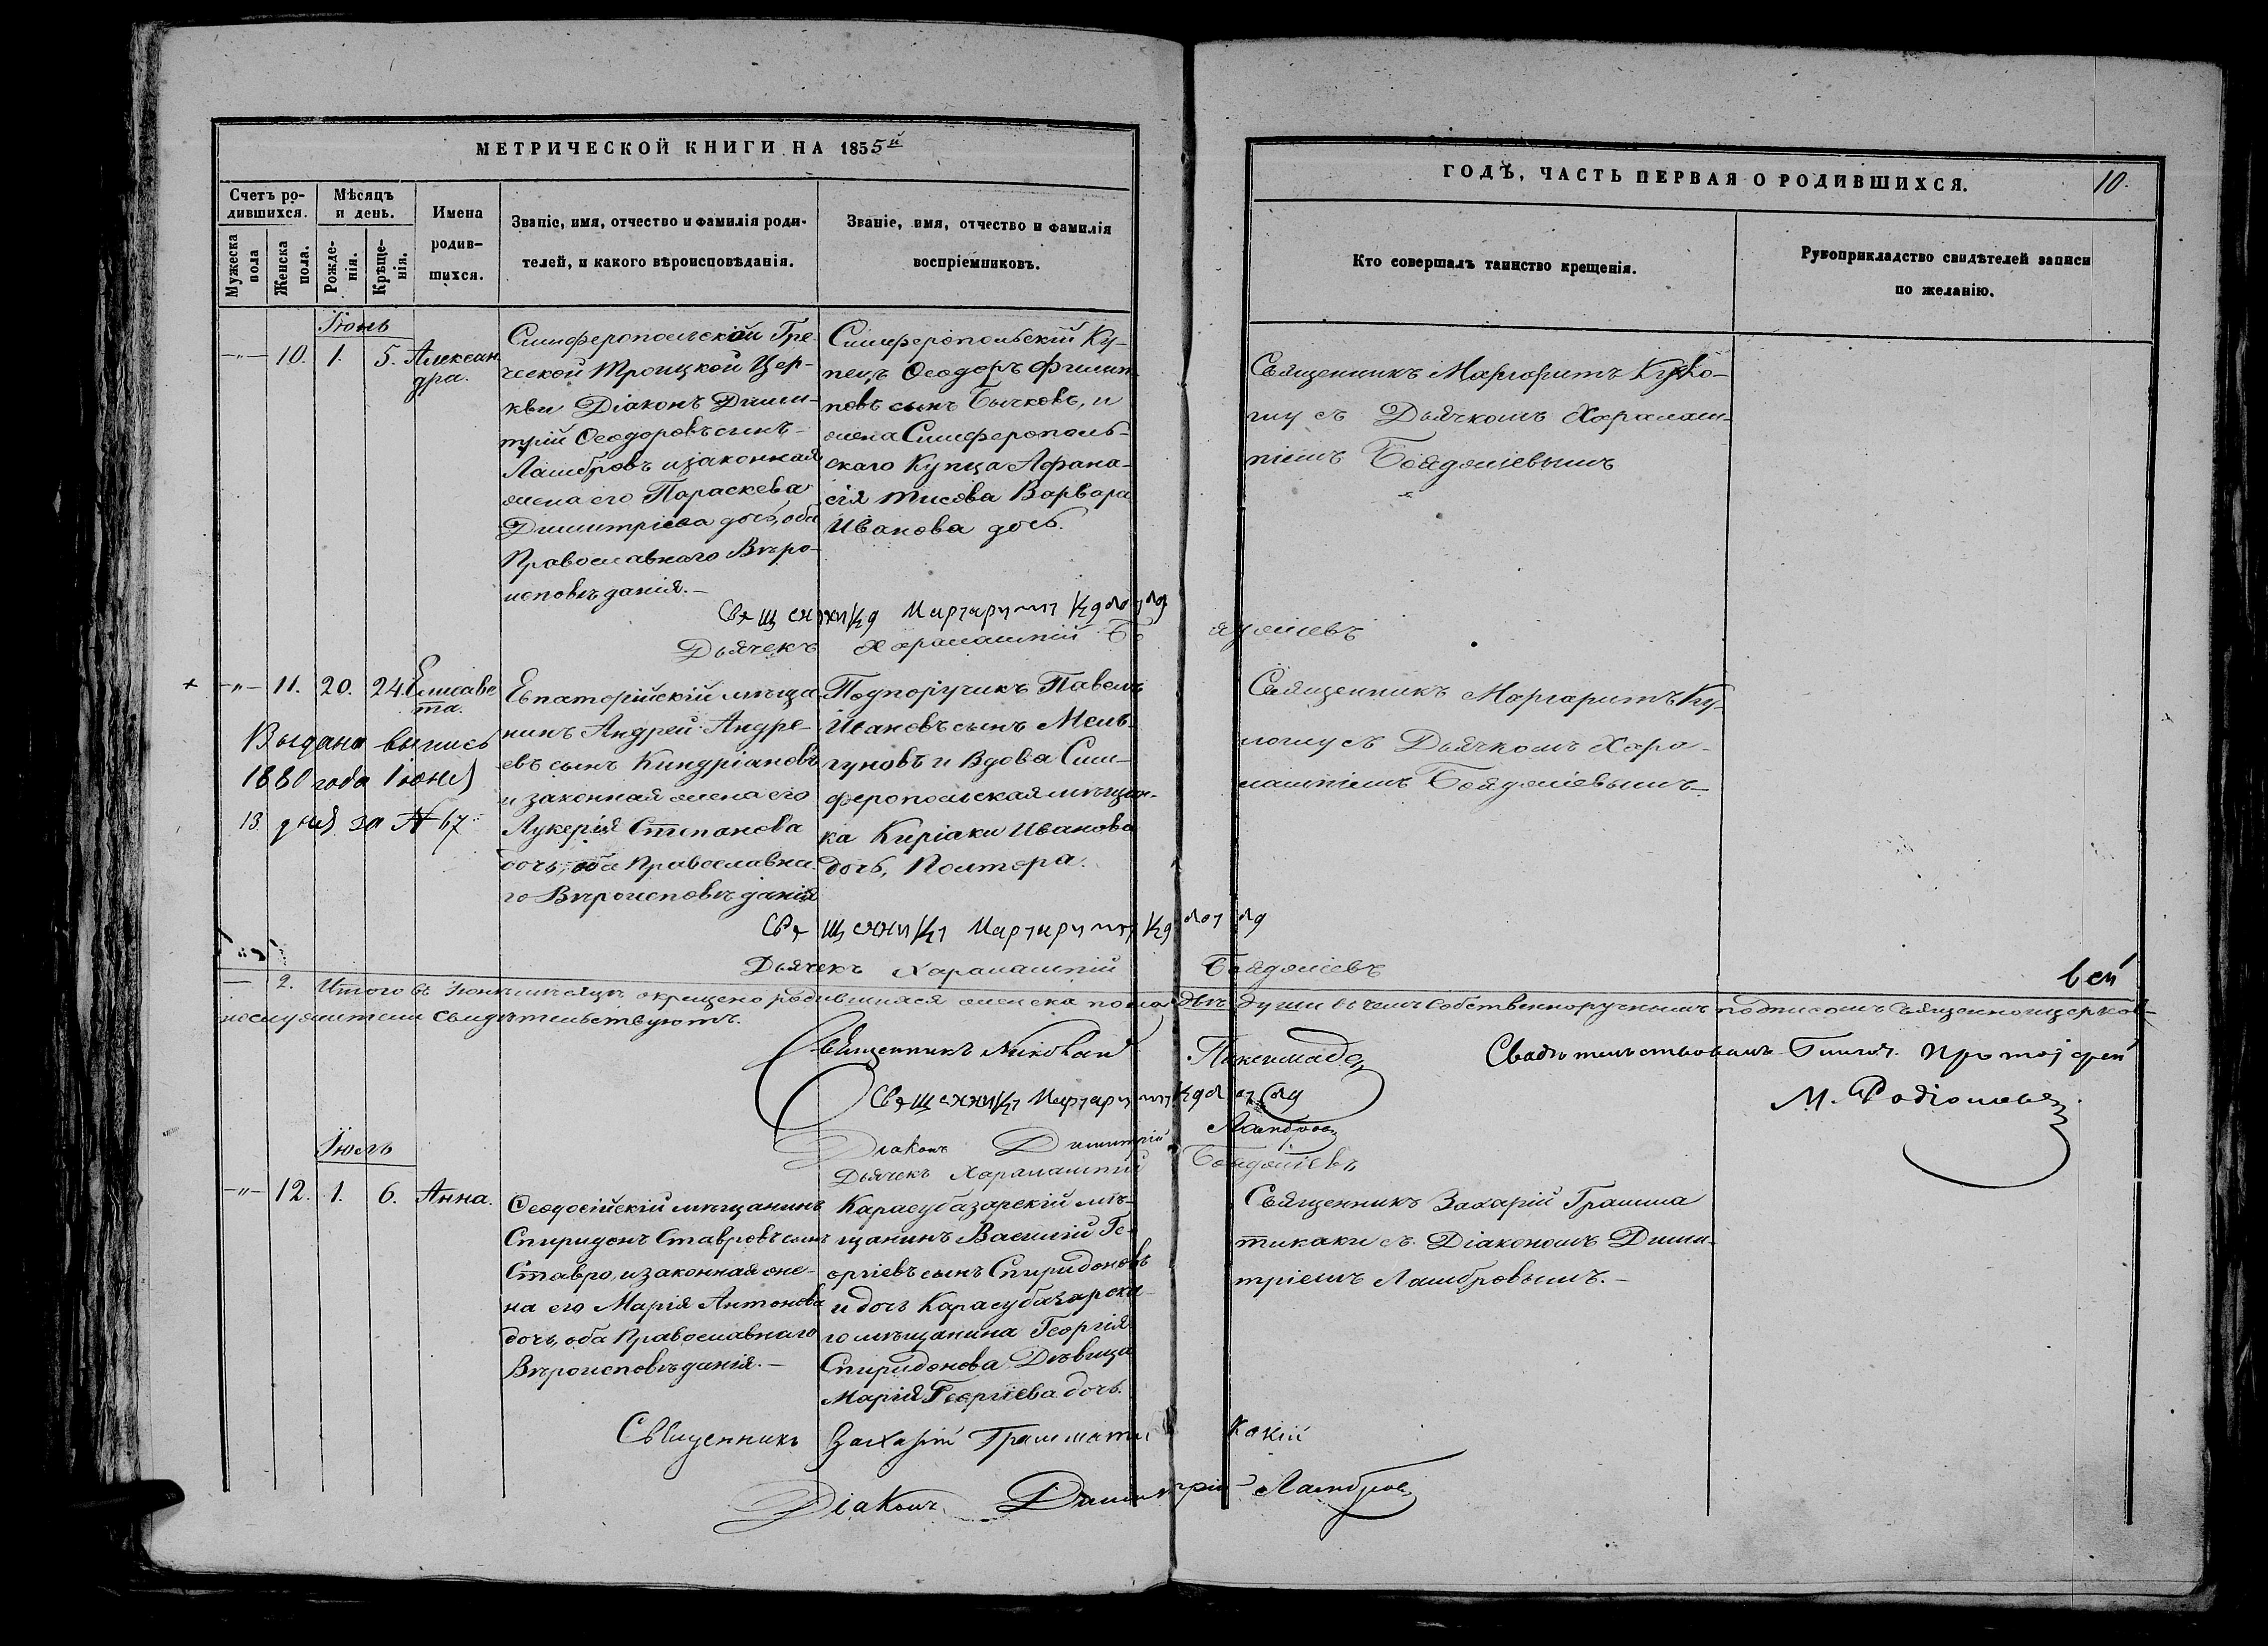 МЕТРИЧЕСКОЙ КНИГИ НА 1855й
Счетъ ро-
дившихся.
Мужеска
пола
Женска
пола.
Мѣсяцъ
и день.
Рожде-
нія.
Крѣще-
нія.
Имена
родив-
шихся.
Званіе, имя, отчество и фамилія роди-
телей, и какого вѣроисповѣданія.
Званіе, имя, отчество и фамилія
воспріемниковъ.
ГОДѢ, ЧАСТЬ ПЕРВАЯ О РОДИВШИХСЯ.
10.
Кто совершалъ таинство крещенія.
Рукоприкладство свидѣтелей записи
по желанію.
Іюнь
—"— 10. 1. 5. Алексан
дра.
Симферопольской Гре-
ческой Троицкой Цер-
кви Діаконъ Дими-
трій Ѳеодоровъ сынъ
Ламбровъ и законная
жена его Параскева
Димитріева дочь, оба
Православнаго Вѣро-
исповѣданія.—
Симферопольскій Ку-
пецъ Ѳеодоръ Филип-
повъ сынъ Бычковъ, и
жена Симферополь-
скаго Купца Афана-
сія Тисова Варвара
Иванова дочь.
Священникъ Маргаритъ
съ Дьячкомъ Харалам-
піемъ Бояджіевымъ
Священникъ Маргаритъ
Дьячекъ Харалампій Бояджіевъ
+ —"— 11. 20. 24. Елисаве
та.
Выдана выпись
1880 года Іюня
13 дня за № 67
Евпаторійскій мѣща-
нинъ Андрей Андре-
евъ сынъ Киндріановъ
и законная жена его
Лукерія Степанова
дочь, оба Православна-
го Вѣроисповѣданія
Подпоручикъ Павелъ
Ивановъ сынъ Мель-
гуновъ и Вдова Сим-
феропольская мѣщан-
ка Киріаки Иванова
дочь, Полтора.
Священникъ Маргаритъ
съ Дьячкомъ Хара-
лампіемъ Бояджіевымъ
Священникъ Маргаритъ
Дьячекъ Харалампій Бояджіевъ
— 2. Итого въ Іюнѣ мѣсяцѣ окрещено родившихся женска пола двѣ души въ чемъ собственноручнымъ подписомъ Священноцерков-
нослужители свидѣтельствуютъ.
Священникъ Николай
Священникъ Маргаритъ
Діаконъ Димитрій Ламбровъ
Дьячекъ Харалампій Бояджіевъ
Протоіерей
М. Родіоновъ
Іюль
—"— 12. 1. 6. Анна.
Ѳеодосійскій мѣщанинъ
Спиридонъ Ставровъ сынъ
Ставро, и законная же-
на его Марія Антонова
дочь, оба Православнаго
Вѣроисповѣданія.—
Карасубазарскій мѣ-
щанинъ Василій Ге-
оргіевъ сынъ Спиридоновъ
и дочь Карасубазарска-
го мѣщанина Георгія
Спиридонова Дѣвица
Марія Георгіева дочь.
Священникъ Захарій Грамма
тикаки съ Діакономъ Дими-
тріемъ Ламбровымъ.—
Священникъ Захарій Граммати какій
Діаконъ Димитрій Ламбровъ